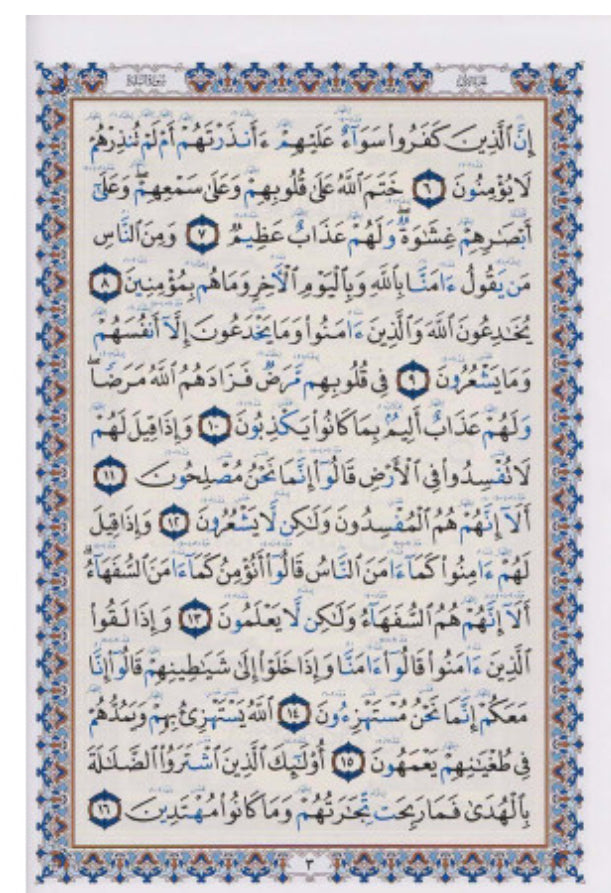 سورة البقرة الجزء الأول
إِنَّ ٱلَّذِينَ كَفَرُوا۟ سَوَآءٌ عَلَيْهِمْ ءَأَنذَرْتَهُمْ أَمْ لَمْ تُنذِرْهُمْ
لَا يُؤْمِنُونَ ٦ خَتَمَ ٱللَّهُ عَلَىٰ قُلُوبِهِمْ وَعَلَىٰ سَمْعِهِمْ ۖ وَعَلَىٰٓ
أَبْصَٰرِهِمْ غِشَٰوَةٌ ۖ وَلَهُمْ عَذَابٌ عَظِيمٌ ٧ وَمِنَ ٱلنَّاسِ
مَن يَقُولُ ءَامَنَّا بِٱللَّهِ وَبِٱلْيَوْمِ ٱلْءَاخِرِ وَمَا هُم بِمُؤْمِنِينَ ٨
يُخَٰدِعُونَ ٱللَّهَ وَٱلَّذِينَ ءَامَنُوا۟ وَمَا يَخْدَعُونَ إِلَّآ أَنفُسَهُمْ
وَمَا يَشْعُرُونَ ٩ فِى قُلُوبِهِم مَّرَضٌ فَزَادَهُمُ ٱللَّهُ مَرَضًا ۖ
وَلَهُمْ عَذَابٌ أَلِيمٌۢ بِمَا كَانُوا۟ يَكْذِبُونَ ١٠ وَإِذَا قِيلَ لَهُمْ
لَا تُفْسِدُوا۟ فِى ٱلْأَرْضِ قَالُوٓا۟ إِنَّمَا نَحْنُ مُصْلِحُونَ ١١
أَلَآ إِنَّهُمْ هُمُ ٱلْمُفْسِدُونَ وَلَٰكِن لَّا يَشْعُرُونَ ١٢ وَإِذَا قِيلَ
لَهُمْ ءَامِنُوا۟ كَمَآ ءَامَنَ ٱلنَّاسُ قَالُوٓا۟ أَنُؤْمِنُ كَمَآ ءَامَنَ ٱلسُّفَهَآءُ ۗ
أَلَآ إِنَّهُمْ هُمُ ٱلسُّفَهَآءُ وَلَٰكِن لَّا يَعْلَمُونَ ١٣ وَإِذَا لَقُوا۟
ٱلَّذِينَ ءَامَنُوا۟ قَالُوٓا۟ ءَامَنَّا وَإِذَا خَلَوْا۟ إِلَىٰ شَيَٰطِينِهِمْ قَالُوٓا۟ إِنَّا
مَعَكُمْ إِنَّمَا نَحْنُ مُسْتَهْزِءُونَ ١٤ ٱللَّهُ يَسْتَهْزِئُ بِهِمْ وَيَمُدُّهُمْ
فِى طُغْيَٰنِهِمْ يَعْمَهُونَ ١٥ أُو۟لَٰٓئِكَ ٱلَّذِينَ ٱشْتَرَوُا۟ ٱلضَّلَٰلَةَ
بِٱلْهُدَىٰ فَمَا رَبِحَت تِّجَٰرَتُهُمْ وَمَا كَانُوا۟ مُهْتَدِينَ ١٦
٣